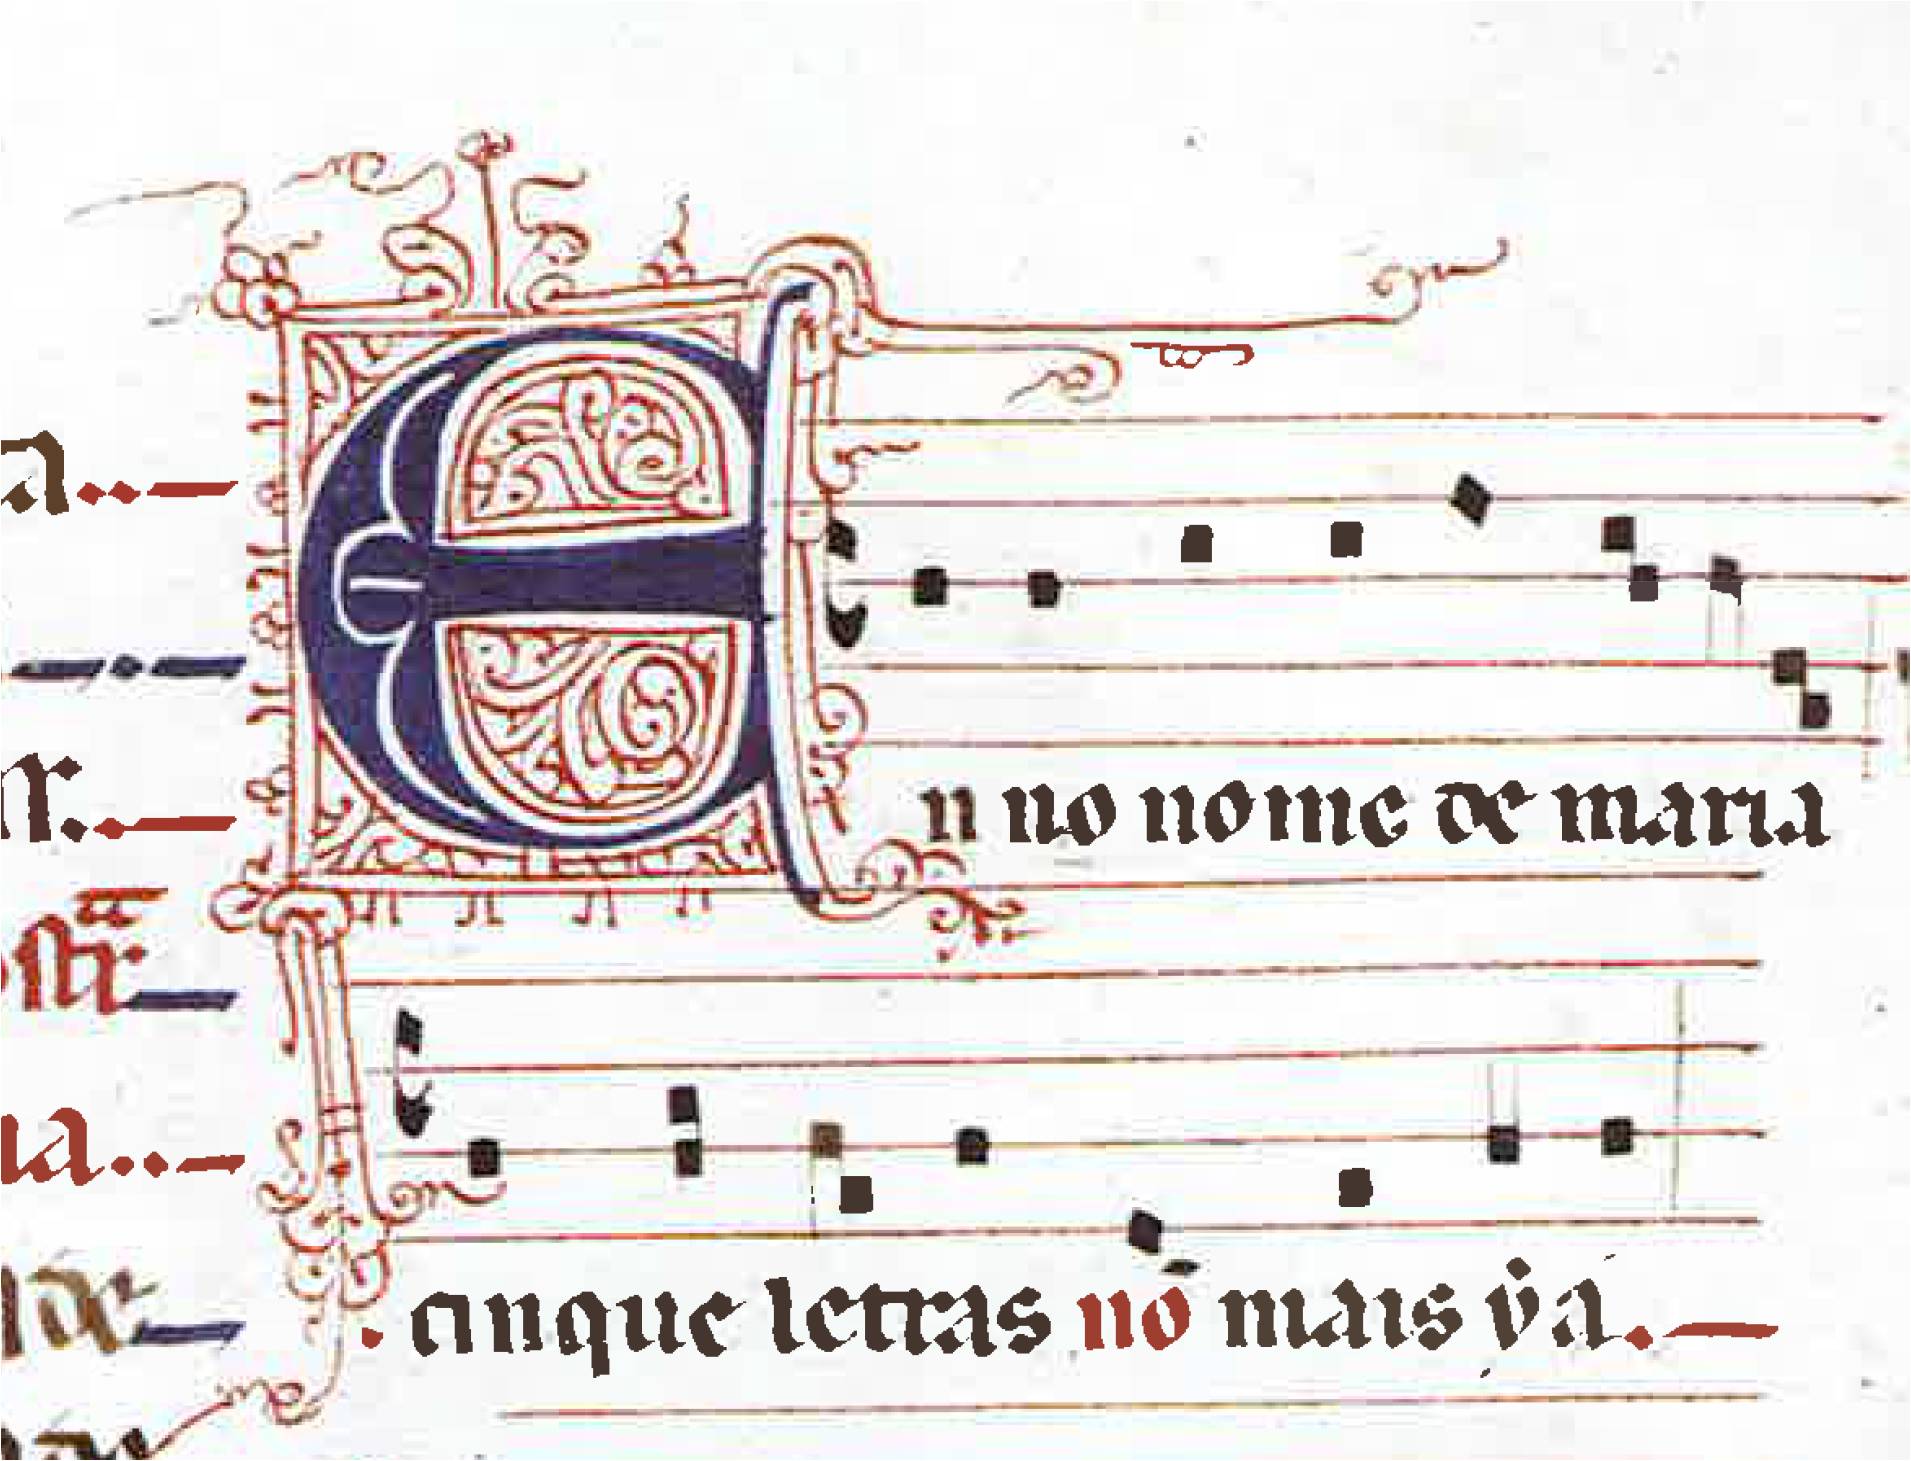 En no nome de maria
. cinque letras no mais y á.